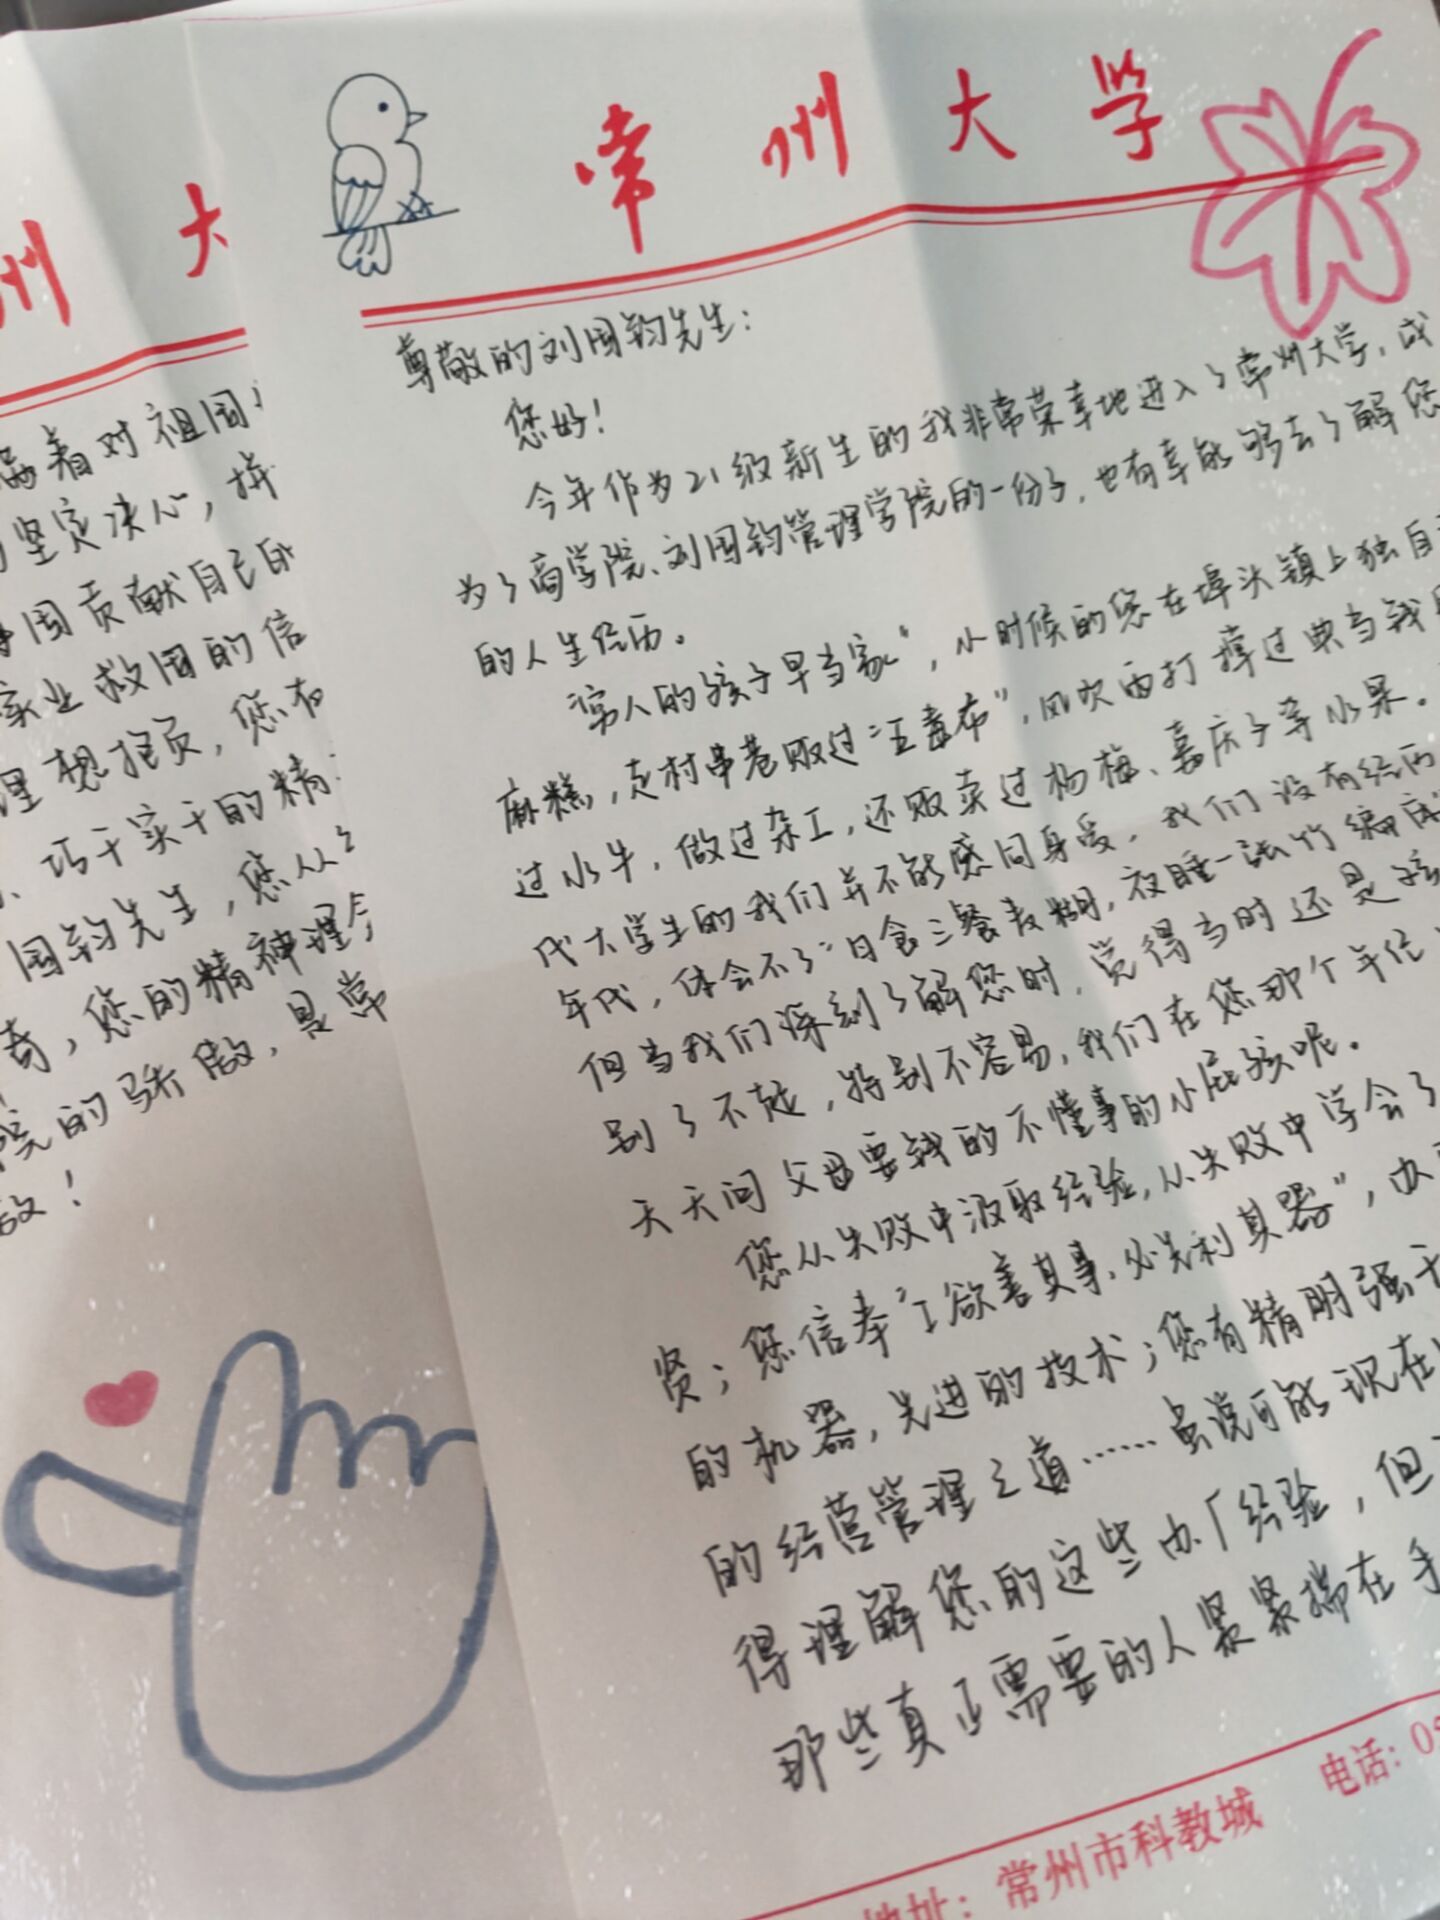 常州大学
尊敬的刘国钧先生：
您好！
今年作为21级新生的我非常荣幸地进入了常州大学，成
为了商学院、刘国钧管理学院的一份子，也有幸能够去了解您
的人生经历。
穷人的孩子早当家"，小时候的您在埠头镇上独自
麻糕，走村串巷贩过"土布"，风吹雨打撑过典当钱
过水牛，做过杂工，还贩卖过杨梅、嘉庆子等水果。
代大学生的我们并不能感同身受，我们没有经历
年代，体会不了"日食三餐麦糊，夜睡一张竹编床
但当我们深刻了解您时，觉得当时还是孩
别了不起，特别不容易，我们在您那个年纪
天天问父母要钱的不懂事的小屁孩呢。
您从失败中汲取经验，从失败中学会了
贤；您信奉"工欲善其事，必先利其器"，
的机器，先进的技术；您有精明强干
的经营管理之道……虽说可能现在
得理解您的这些办厂经验，但
那些真正需要的人紧紧揣在手
地址：常州市科教城 电话：
州大
着对祖国
坚定决心，拼
国贡献自己的
实业救国的信
理想抱负，您有
巧干实干的精
国钧先生，您从
奇，您的精神理念
院的骄傲，是常
敬！